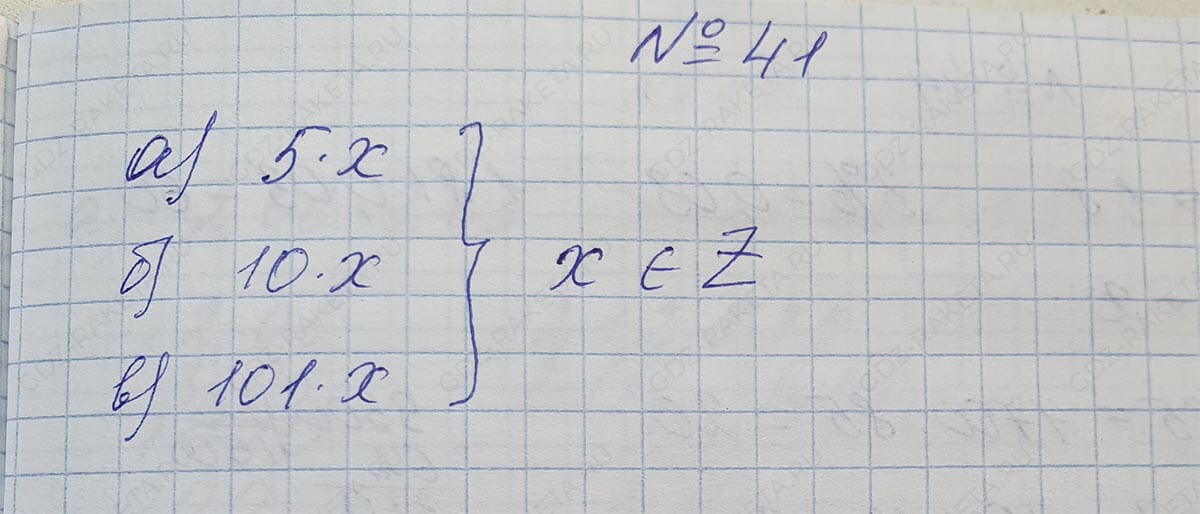 № 41
а) 5·x
б) 10·x
x ∈ Z
в) 101·x
GDZ-RAKETA.RU